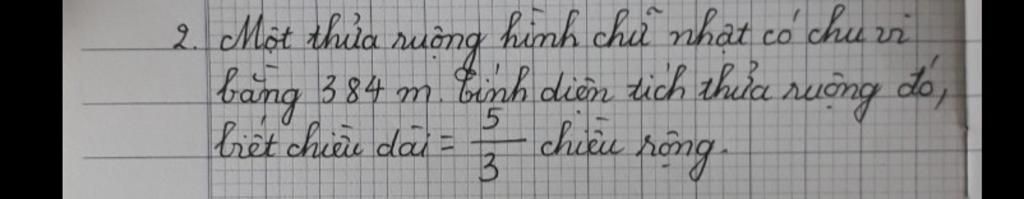 2. Một thửa ruộng hình chữ nhật có chu vi
bằng 384 m. Tính diện tích thửa ruộng đó,
biết chiều dài = 5/3 chiều rộng.